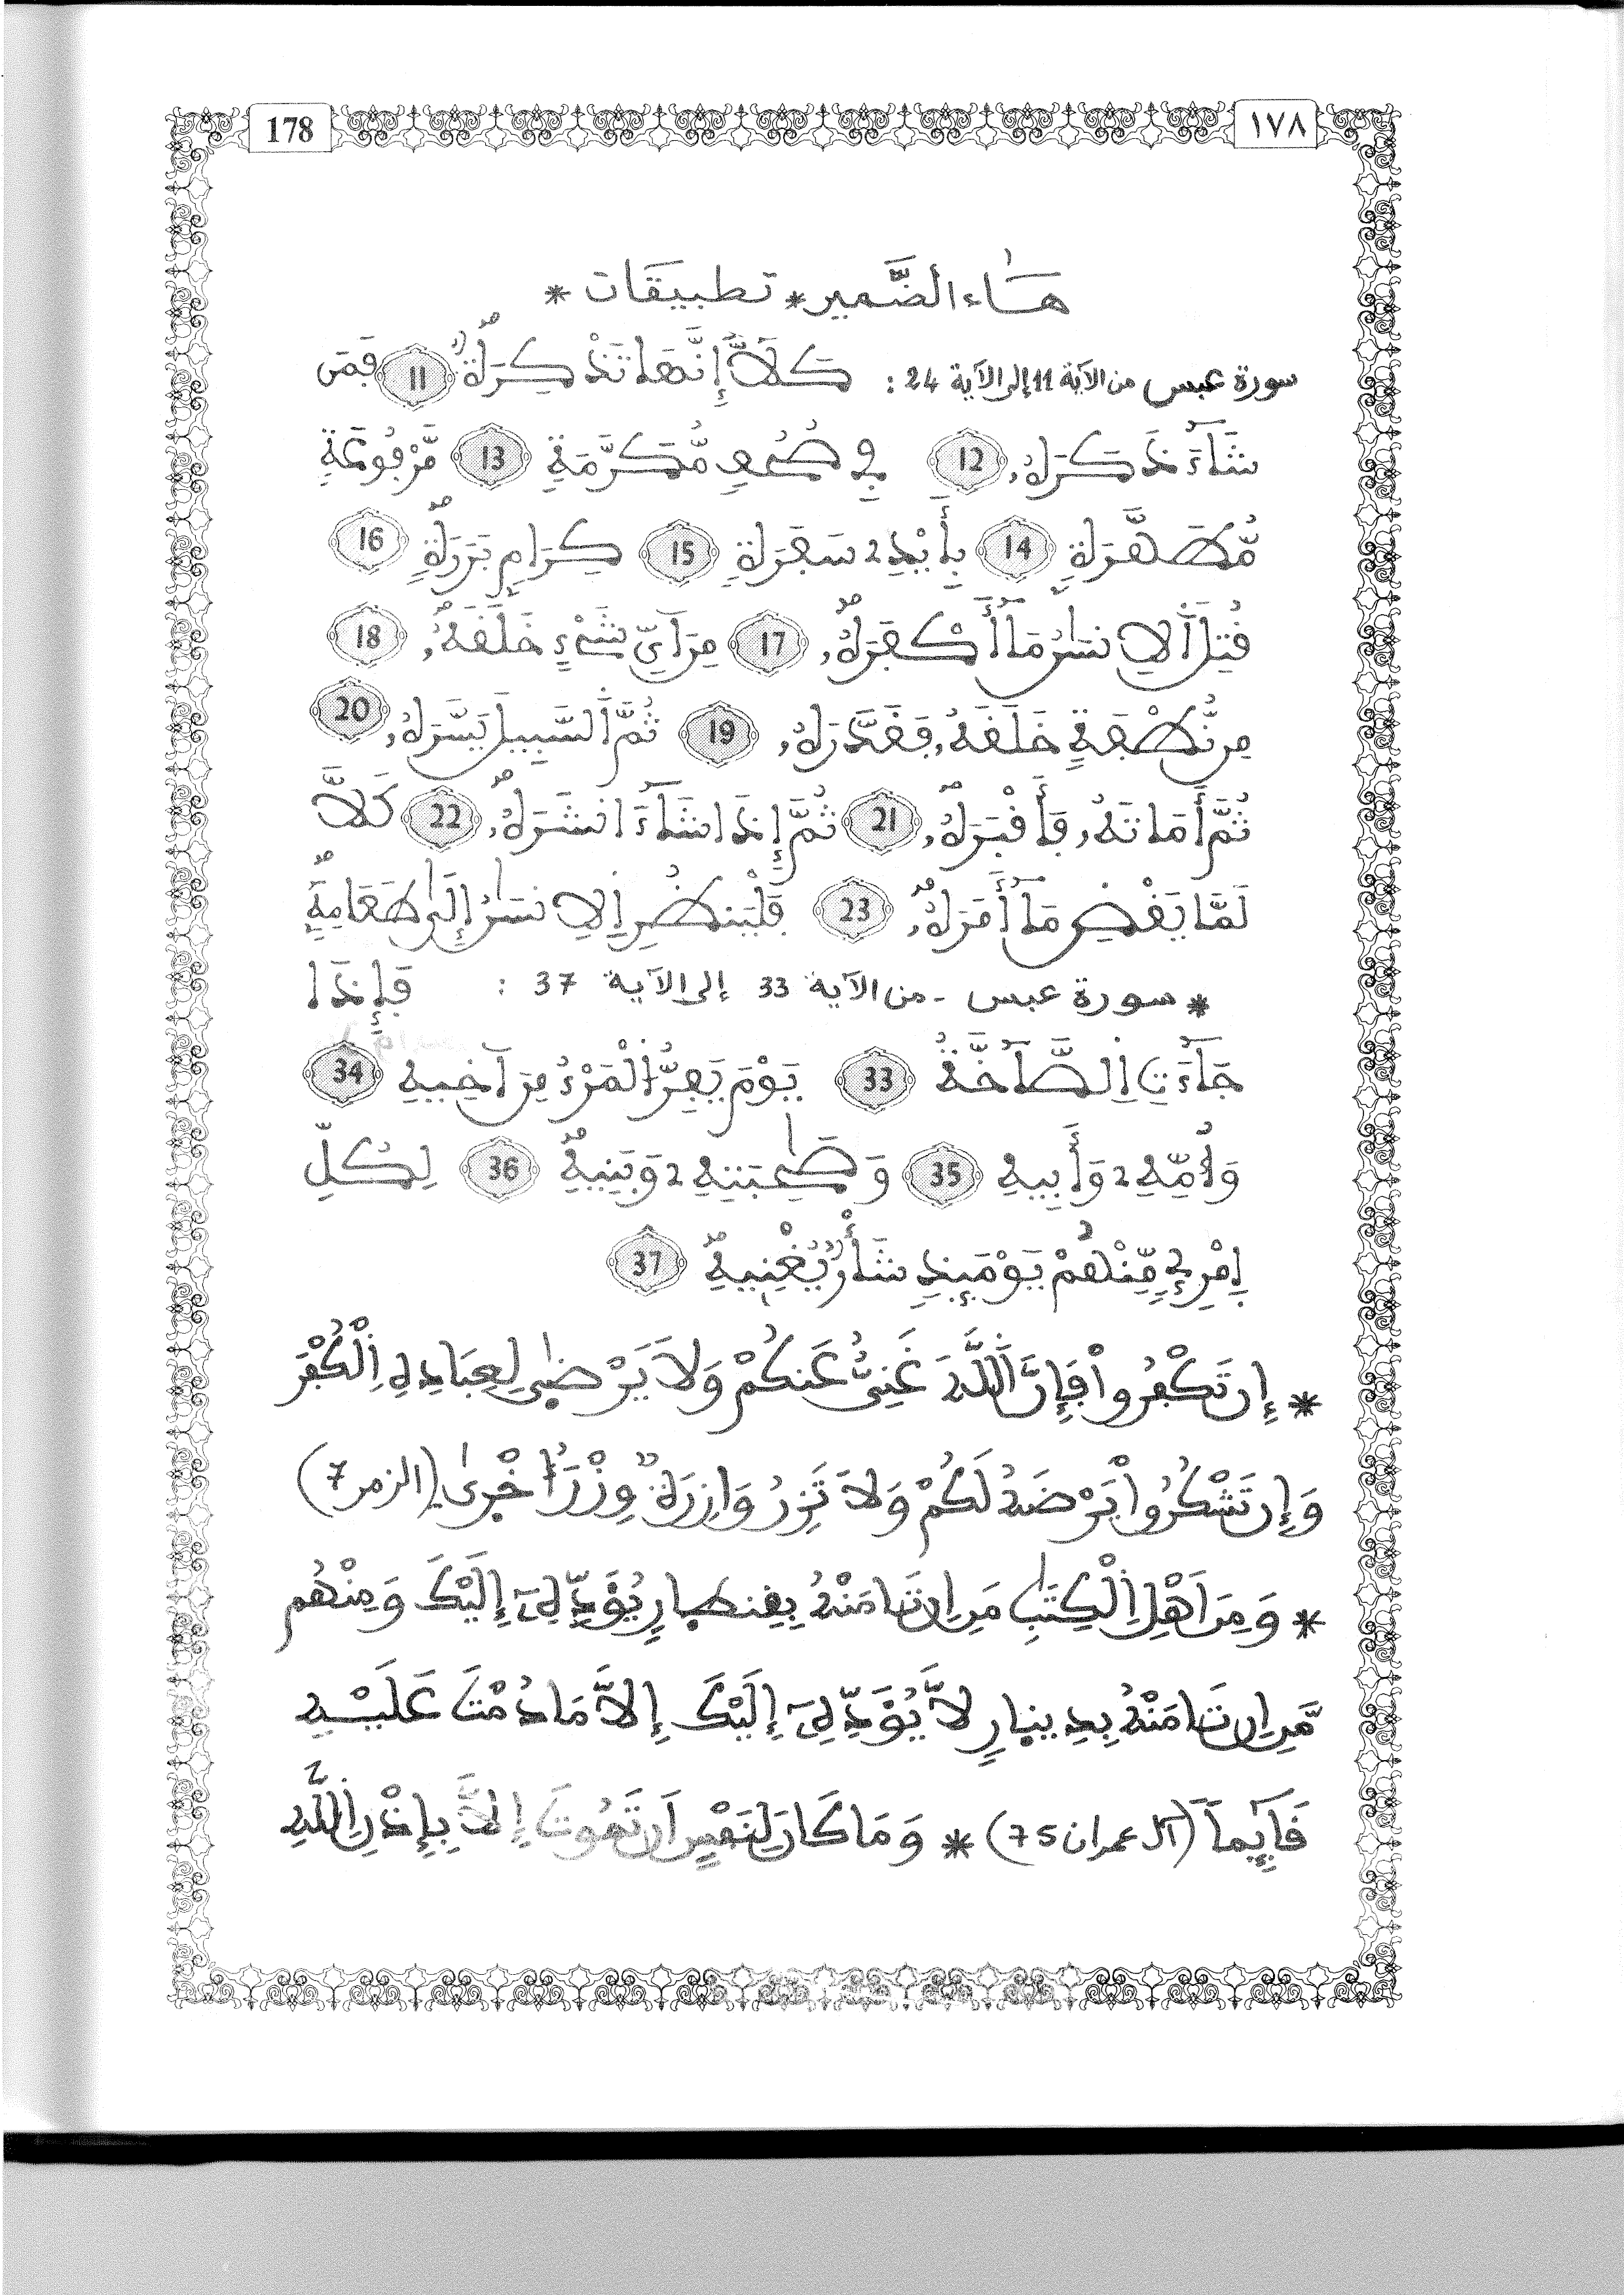 178 ١٧٨
هَاء الضَّمير * تطبيقات *
سورة عبس من الآية 11 إلى الآية 24 : كَلَّآ إِنَّهَا تَذْكِرَةٌ 11 فَمَن
شَآءَ ذَكَرَهُۥ 12 فِے صُحُفٍ مُّكَرَّمَةٍ 13 مَّرْفُوعَةٍ
مُّطَهَّرَةٍ 14 بِأَيْدِے سَفَرَةٍ 15 كِرَامٍ بَرَرَةٍ 16
قُتِلَ اَلِانسَٰنُ مَآ أَكْفَرَهُۥ 17 مِنَ اَيِّ شَےْءٍ خَلَقَهُۥ 18
مِن نُّطْفَةٍ خَلَقَهُۥ فَقَدَّرَهُۥ 19 ثُمَّ اَلسَّبِيلَ يَسَّرَهُۥ 20
ثُمَّ أَمَاتَهُۥ فَأَقْبَرَهُۥ 21 ثُمَّ إِذَا شَآءَ انشَرَهُۥ 22 كَلَّا
لَمَّا يَقْضِ مَآ أَمَرَهُۥ 23 فَلْيَنظُرِ اِلِانسَٰنُ إِلَىٰ طَعَامِهِۦٓ
* سورة عبس - من الآية 33 إلى الآية 37 : فَإِذَا
جَآءَتِ اِلصَّآخَّةُ 33 يَوْمَ يَفِرُّ اُلْمَرْءُ مِنَ اَخِيهِ 34
وَأُمِّهِۦ وَأَبِيهِ 35 وَصَٰحِبَتِهِۦ وَبَنِيهِ 36 لِكُلِّ
اِمْرِےٕٖ مِّنْهُمْ يَوْمَئِذٍ شَأْنٌ يُغْنِيهِ 37
* إِن تَكْفُرُواْ فَإِنَّ اَللَّهَ غَنِىٌّ عَنكُمْ وَلَا يَرْضَىٰ لِعِبَادِهِ اِلْكُفْرَ
وَإِن تَشْكُرُواْ يَرْضَهُ لَكُمْ وَلَا تَزِرُ وَازِرَةٌ وِزْرَ أُخْرَىٰ (الزمر 7)
* وَمِنَ اَهْلِ اِلْكِتَٰبِ مَنِ اِن تَامَنْهُ بِقِنطِارٍ يُؤَدِّهِۦٓ إِلَيْكَ وَمِنْهُم
مَّنِ اِن تَامَنْهُ بِدِينِارٍ لَّا يُؤَدِّهِۦٓ إِلَيْكَ إِلَّا مَا دُمْتَ عَلَيْهِ
قَآئِماً (آل عمران 75) * وَمَا كَانَ لِنَفْسٍ اَن تَمُوتَ إِلَّا بِإِذْنِ اِللَّهِ